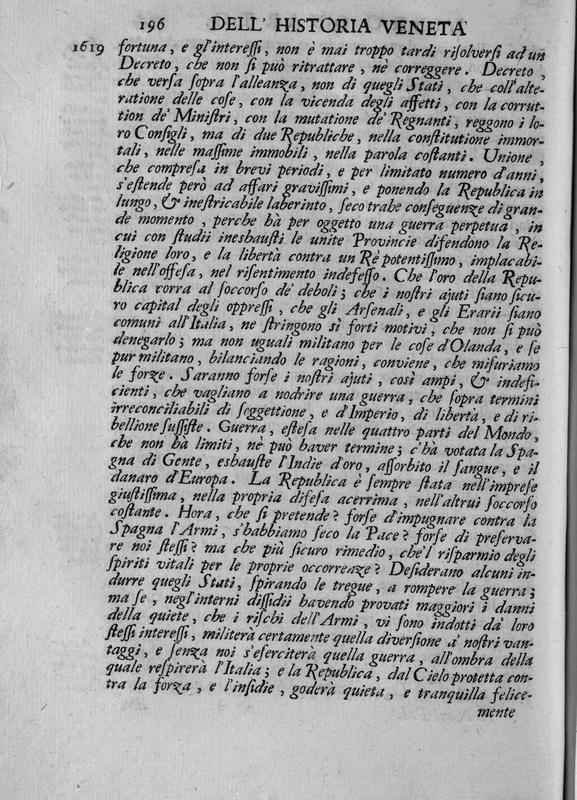 196 DELL' HISTORIA VENETA
1619 fortuna, e gl'intereſſi, non è mai troppo tardi riſolverſi ad un
Decreto, che non ſi può ritrattare, nè correggere. Decreto,
che verſa ſopra l'alleanza, non di quegli Stati, che coll'alte-
ratione delle coſe, con la vicenda degli affetti, con la corrut-
tion de' Miniſtri, con la mutatione de' Regnanti, reggono i lo-
ro Conſigli, ma di due Republiche, nella conſtitutione immor-
tali, nelle maſſime immobili, nella parola coſtanti. Unione,
che compreſa in brevi periodi, e per limitato numero d'anni,
s'eſtende però ad affari graviſſimi, e ponendo la Republica in
lungo, & ineſtricabile laberinto, ſeco trahe conſeguenze di gran-
de momento, perche hà per oggetto una guerra perpetua, in
cui con ſtudii inesbauſti le unite Provincie difendono la Re-
ligione loro, e la libertà contra un Rè potentiſſimo, implacabi-
le nell'offeſa, nel riſentimento indefeſſo. Che l'oro della Repu-
blica corra al ſoccorſo de' deboli; che i noſtri ajuti ſiano ſicu-
ro capital degli oppreſſi, che gli Arſenali, e gli Erarii ſiano
comuni all'Italia, ne ſtringono sì forti motivi, che non ſi può
denegarlo; ma non uguali militano per le coſe d'Olanda, e ſe
pur militano, bilanciando le ragioni, conviene, che miſuriamo
le forze. Saranno forſe i noſtri ajuti, così ampi, & indefi-
cienti, che vagliano a nodrire una guerra, che ſopra termini
irreconciliabili di ſoggettione, e d'Imperio, di libertà, e di ri-
bellione ſuſſiſte. Guerra, eſteſa nelle quattro parti del Mondo,
che non hà limiti, nè può haver termine; c'hà votata la Spa-
gna di Gente, esbauſte l'Indie d'oro, aſſorbito il ſangue, e il
danaro d'Europa. La Republica è ſempre ſtata nell'impreſe
giuſtiſſima, nella propria difeſa acerrima, nell'altrui ſoccorſo
coſtante. Hora, che ſi pretende? forſe d'impugnare contra la
Spagna l'Armi, s'habbiamo ſeco la Pace? forſe di preſerva-
re noi ſteſſi? ma che più ſicuro rimedio, che'l riſparmio degli
ſpiriti vitali per le proprie occorreaze? Deſiderano alcuni in-
durre quegli Stati, ſpirando le tregue, a rompere la guerra;
ma ſe, negl'interni diſſidii havendo provati maggiori i danni
della quiete, che i riſchi dell'Armi, vi ſono indotti da' loro
ſteſſi intereſſi, militerà certamente quella diverſione a' noſtri van-
taggi, e ſenza noi s'eſerciterà quella guerra, all'ombra della
quale reſpirerà l'Italia; e la Republica, dal Cielo protetta con-
tra la forza, e l'inſidie, goderà quieta, e tranquilla felice-
mente